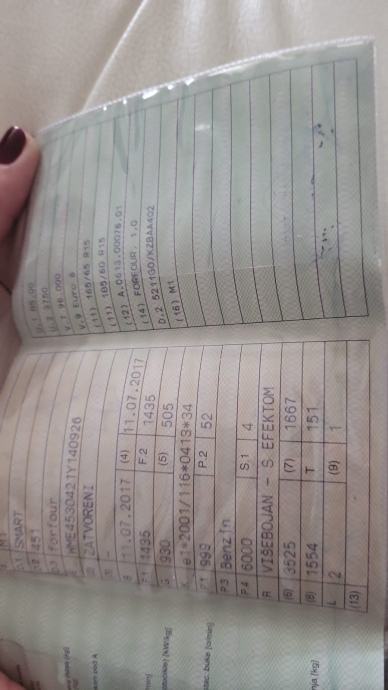 M1
SMART
451
forfour
WME4530421Y140926
ZATVORENI
-
11.07.2017 (4) 11.07.2017
1435 F.2 1435
930 (5) 505
e1*2001/116*0413*34
P.1 999 P.2 52
P3 Benzin
P4 6000 S.1 4
R VIŠEBOJAN - S EFEKTOM
(6) 3525 (7) 1667
(8) 1554 T 151
L 2 (9) 1
(13)
U.2 3750
V.9 Euro 6
(11) 165/65 R15
(11) 185/60 R15
(12) A.0613.00076.01
(14) FORFOUR, 1.0
D.2 5211G0/KZBAA402
(16) M1